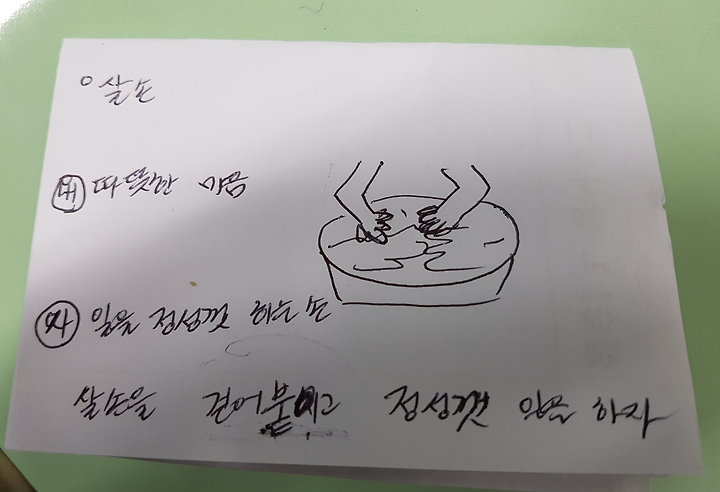 ○ 살손
내 따뜻한 마음
사 일을 정성껏 하는 손
살손을 걷어붙이고 정성껏 일을 하자